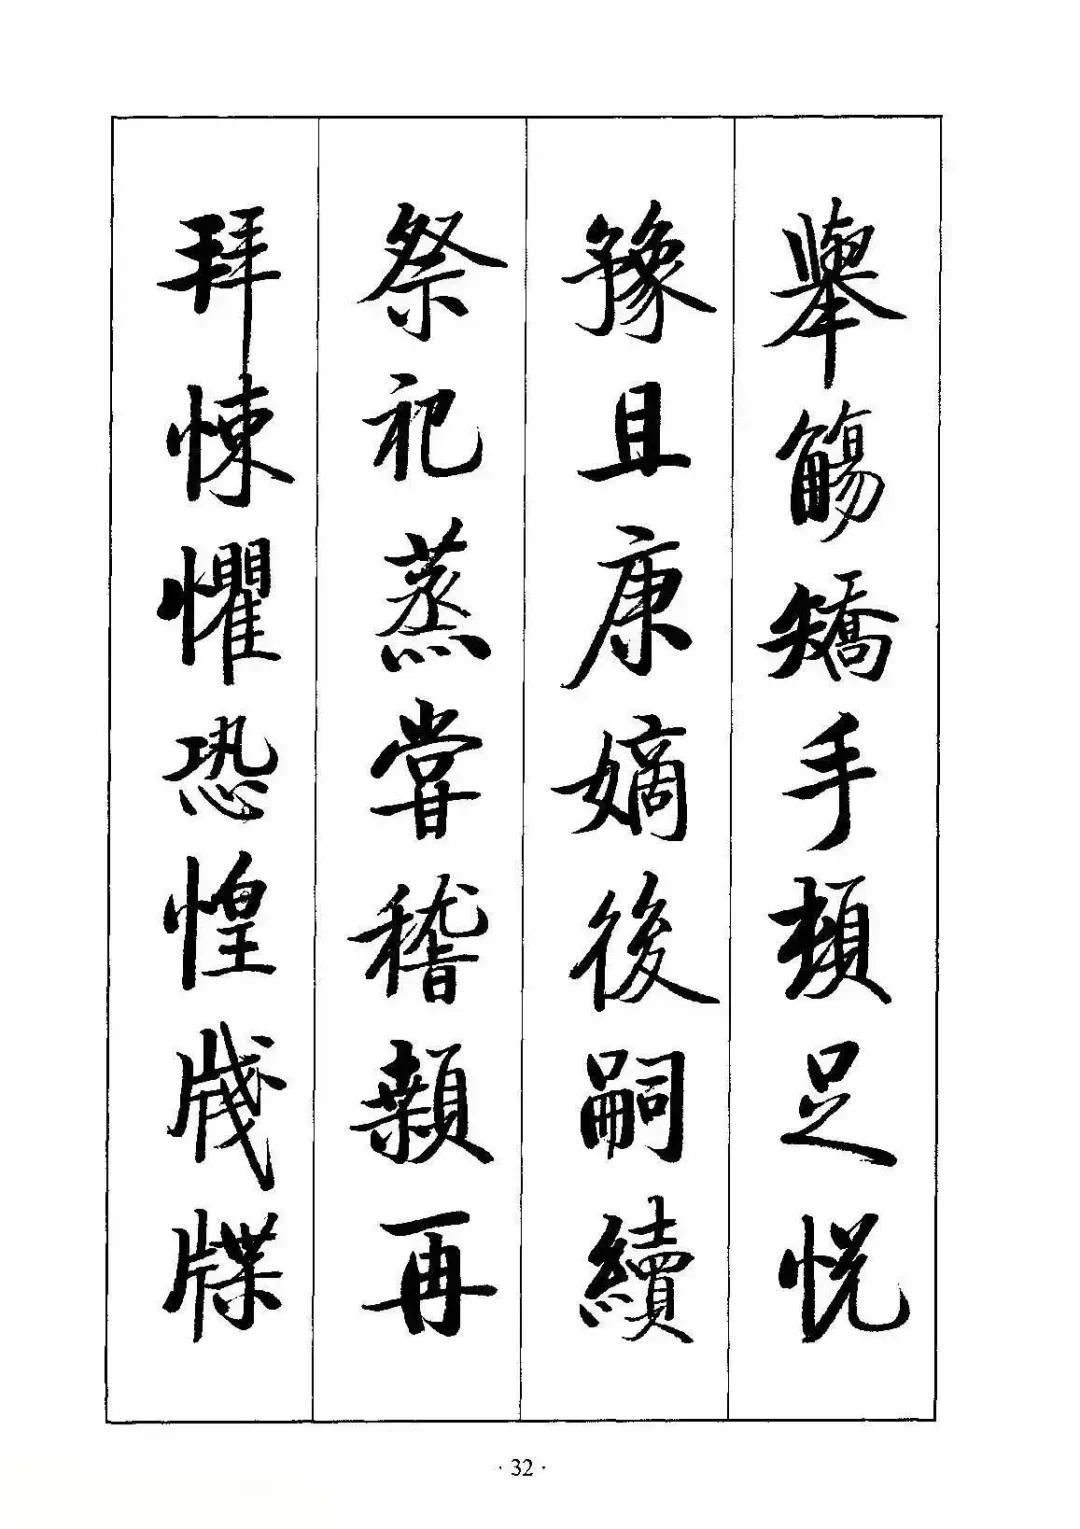 舉觴矯手頓足悅
豫且康嫡後嗣續
祭祀蒸嘗稽顙再
拜悚懼恐惶牋牒
· 32 ·